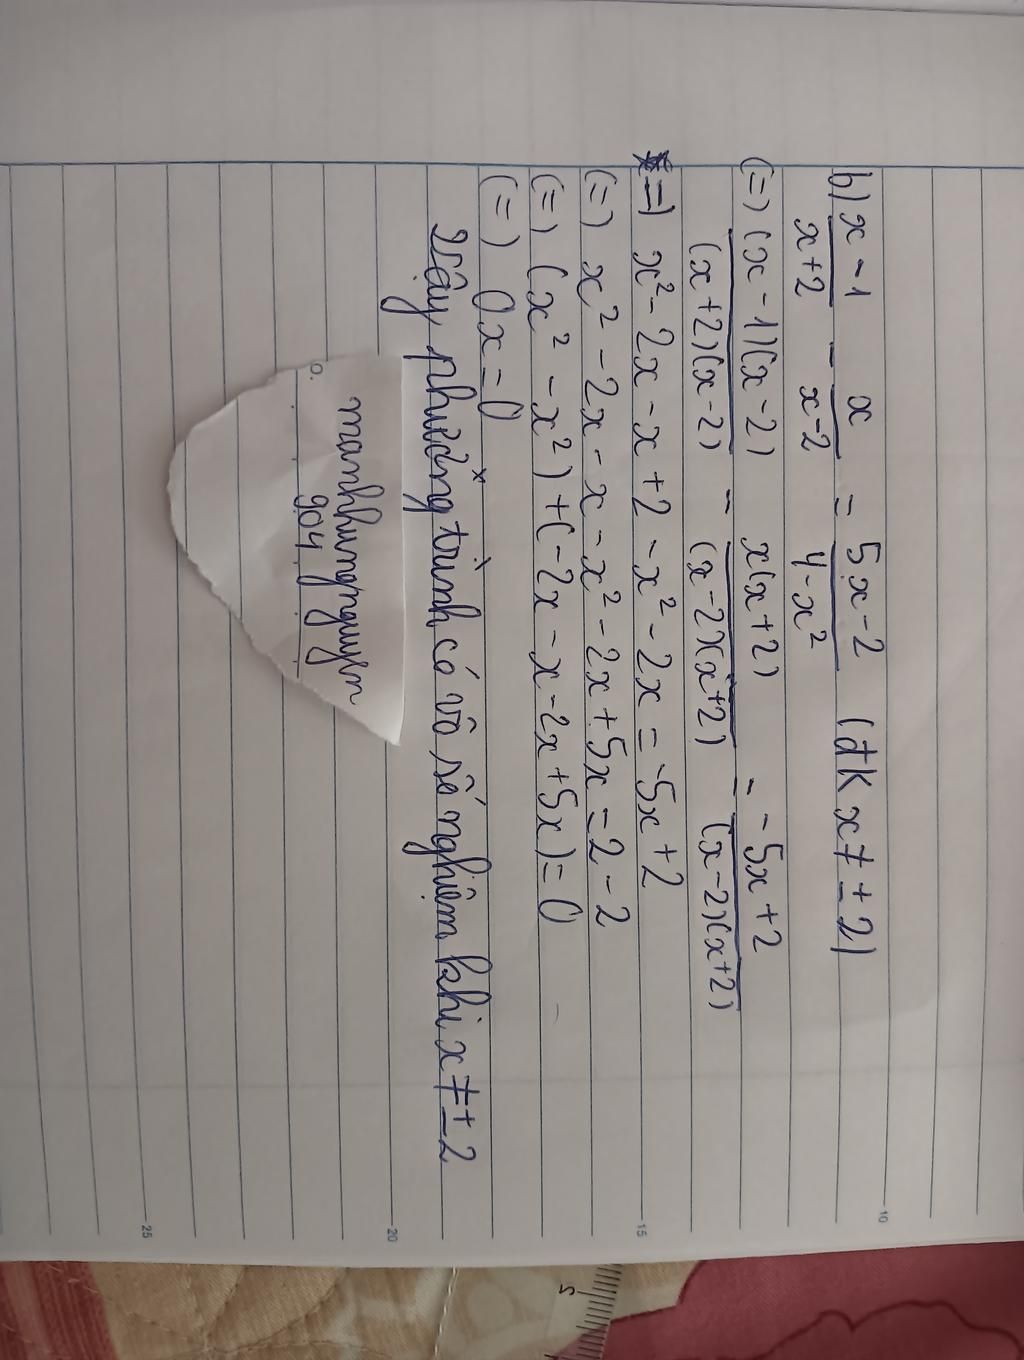 b) x - 1 / x+2 - x / x-2 = 5x-2 / 4-x² (đk x ≠ ±2)
(=) (x - 1)(x - 2) / (x+2)(x-2) - x(x+2) / (x-2)(x+2) = -5x+2 / (x-2)(x+2)
=) x² - 2x - x + 2 - x² - 2x = -5x + 2
(=) x² - 2x - x - x² - 2x + 5x = 2 - 2
(=) (x² - x²) + (-2x - x - 2x + 5x) = 0
(=) 0x = 0
Vậy phương trình có vô số nghiệm khi x ≠ ±2
manhhungnguyen
904
10
15
20
25
5